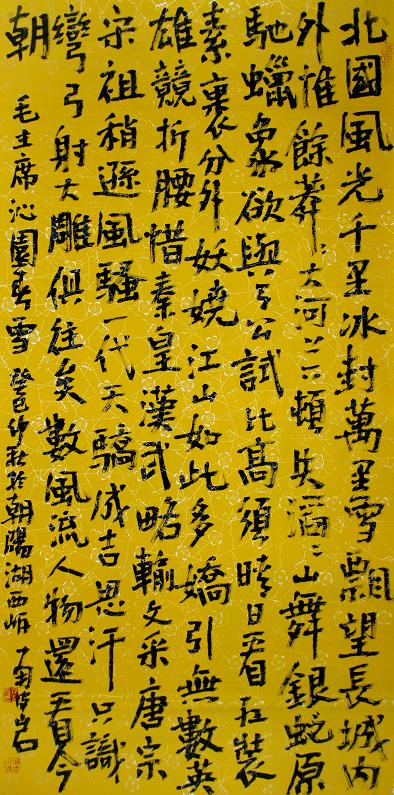 北國風光千里冰封萬里雪飄望長城內
外惟餘莽〻大河上下頓失滔〻山舞銀蛇原
馳蠟象欲與天公試比高須晴日看紅裝
素裹分外妖嬈江山如此多嬌引無數英
雄競折腰惜秦皇漢武略輸文采唐宗
宋祖稍遜風騷一代天驕成吉思汗只識
彎弓射大雕俱往矣數風流人物還看今
朝
毛主席沁園春雪 癸巳仲秋於朝陽湖西